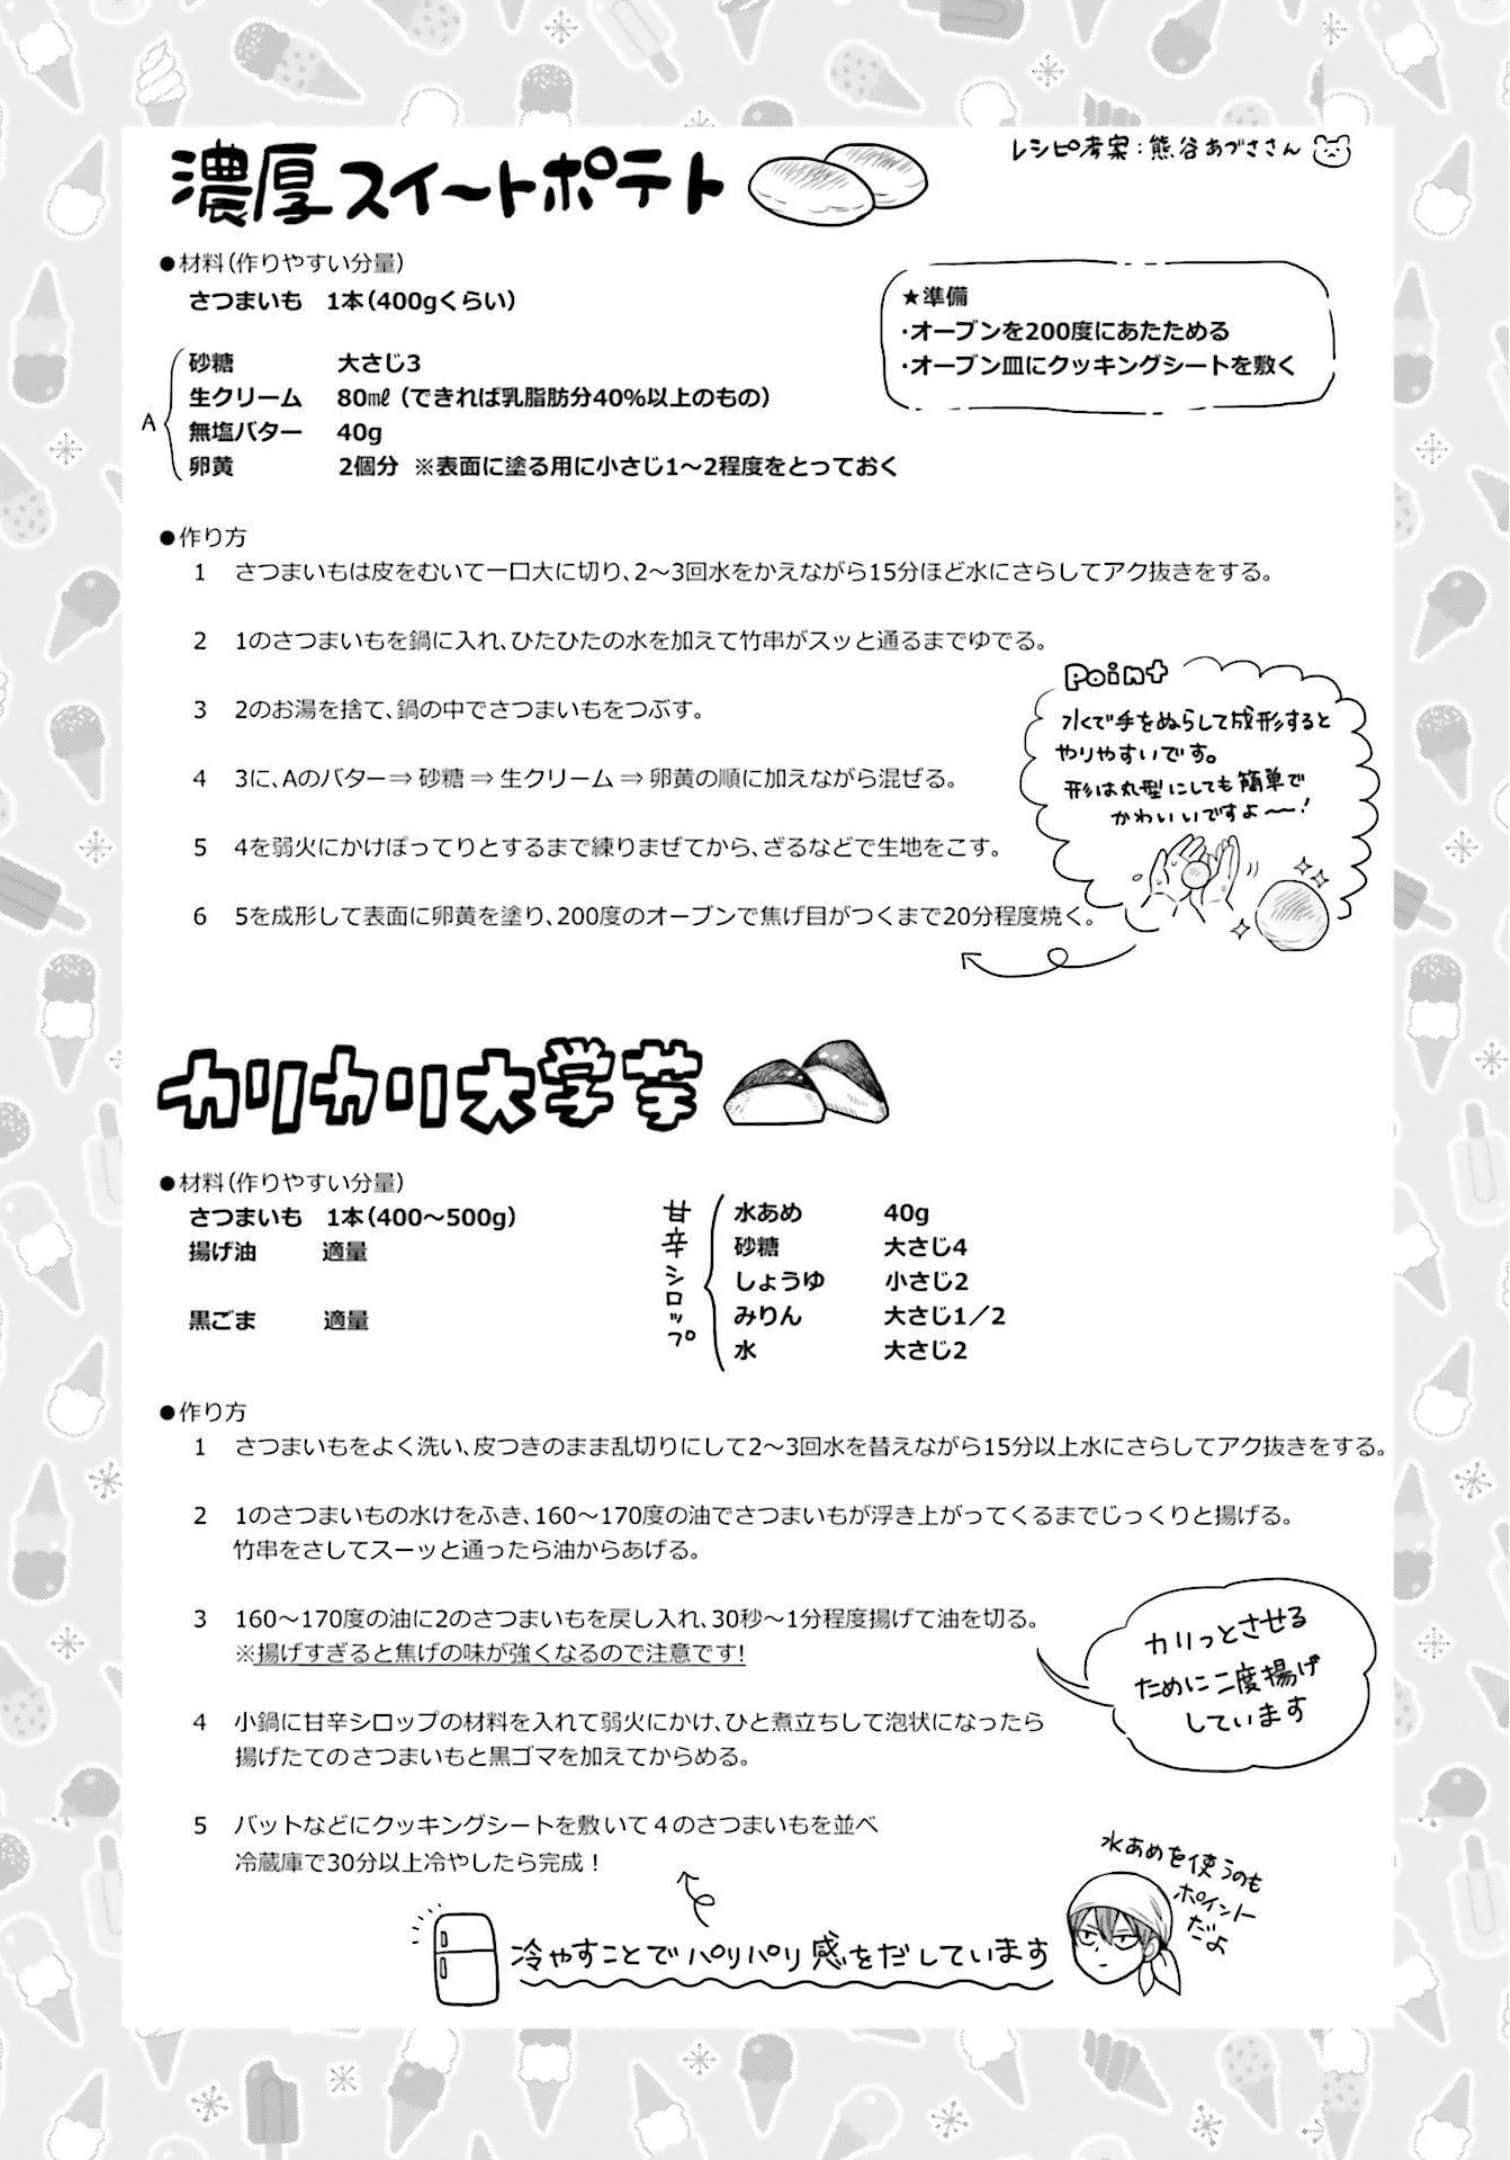 濃厚スイ〜トポテト
レシピ考案：熊谷あづささん
●材料（作りやすい分量）
さつまいも 1本（400gくらい）
★準備
・オーブンを200度にあたためる
・オーブン皿にクッキングシートを敷く
A
砂糖 大さじ3
生クリーム 80㎖（できれば乳脂肪分40%以上のもの）
無塩バター 40g
卵黄 2個分 ※表面に塗る用に小さじ1～2程度をとっておく
●作り方
1 さつまいもは皮をむいて一口大に切り、2～3回水をかえながら15分ほど水にさらしてアク抜きをする。
2 1のさつまいもを鍋に入れ、ひたひたの水を加えて竹串がスッと通るまでゆでる。
3 2のお湯を捨て、鍋の中でさつまいもをつぶす。
4 3に、Aのバター⇒ 砂糖 ⇒ 生クリーム ⇒ 卵黄の順に加えながら混ぜる。
5 4を弱火にかけぽってりとするまで練りまぜてから、ざるなどで生地をこす。
6 5を成形して表面に卵黄を塗り、200度のオーブンで焦げ目がつくまで20分程度焼く。
Point
水で手をぬらして成形すると
やりやすいです。
形は丸型にしても簡単で
かわいいですよ〜！
カリカリ大学芋
●材料（作りやすい分量）
さつまいも 1本（400～500g）
揚げ油 適量
黒ごま 適量
甘辛シロップ
水あめ 40g
砂糖 大さじ4
しょうゆ 小さじ2
みりん 大さじ1／2
水 大さじ2
●作り方
1 さつまいもをよく洗い、皮つきのまま乱切りにして2～3回水を替えながら15分以上水にさらしてアク抜きをする。
2 1のさつまいもの水けをふき、160～170度の油でさつまいもが浮き上がってくるまでじっくりと揚げる。
竹串をさしてスーッと通ったら油からあげる。
3 160～170度の油に2のさつまいもを戻し入れ、30秒～1分程度揚げて油を切る。
※揚げすぎると焦げの味が強くなるので注意です！
カリっとさせる
ために二度揚げ
しています
4 小鍋に甘辛シロップの材料を入れて弱火にかけ、ひと煮立ちして泡状になったら
揚げたてのさつまいもと黒ゴマを加えてからめる。
5 バットなどにクッキングシートを敷いて４のさつまいもを並べ
冷蔵庫で30分以上冷やしたら完成！
冷やすことでパリパリ感をだしています
水あめを使うのも
ポイント
だよ